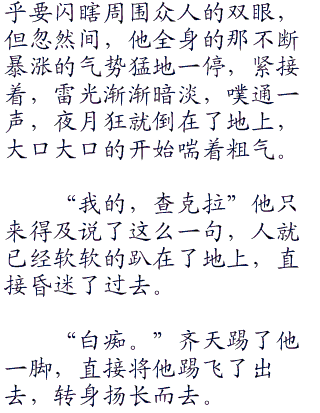 乎要闪瞎周围众人的双眼，
但忽然间，他全身的那不断
暴涨的气势猛地一停，紧接
着，雷光渐渐暗淡，噗通一
声，夜月狂就倒在了地上，
大口大口的开始喘着粗气。
“我的，查克拉”他只
来得及说了这么一句，人就
已经软软的趴在了地上，直
接昏迷了过去。
“白痴。”齐天踢了他
一脚，直接将他踢飞了出
去，转身扬长而去。